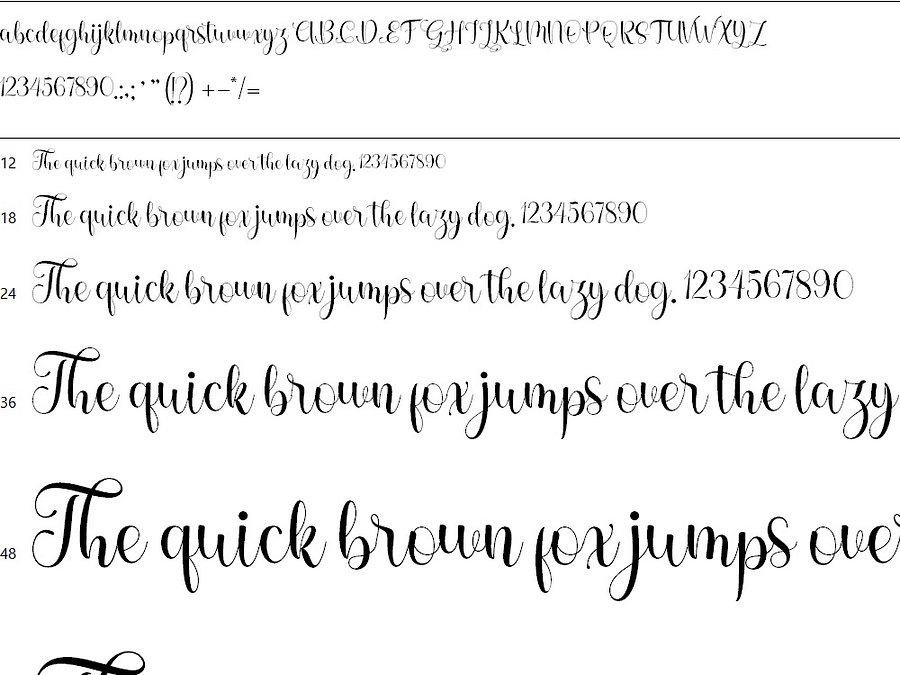 abcdefghijklmnopqrstuvwxyz ABCDEFGHIJKLMNOPQRSTUVWXYZ
1234567890.:,; ' " (!?) +-*/=
12 The quick brown fox jumps over the lazy dog. 1234567890
18 The quick brown fox jumps over the lazy dog. 1234567890
24 The quick brown fox jumps over the lazy dog. 1234567890
36 The quick brown fox jumps over the lazy
48 The quick brown fox jumps over